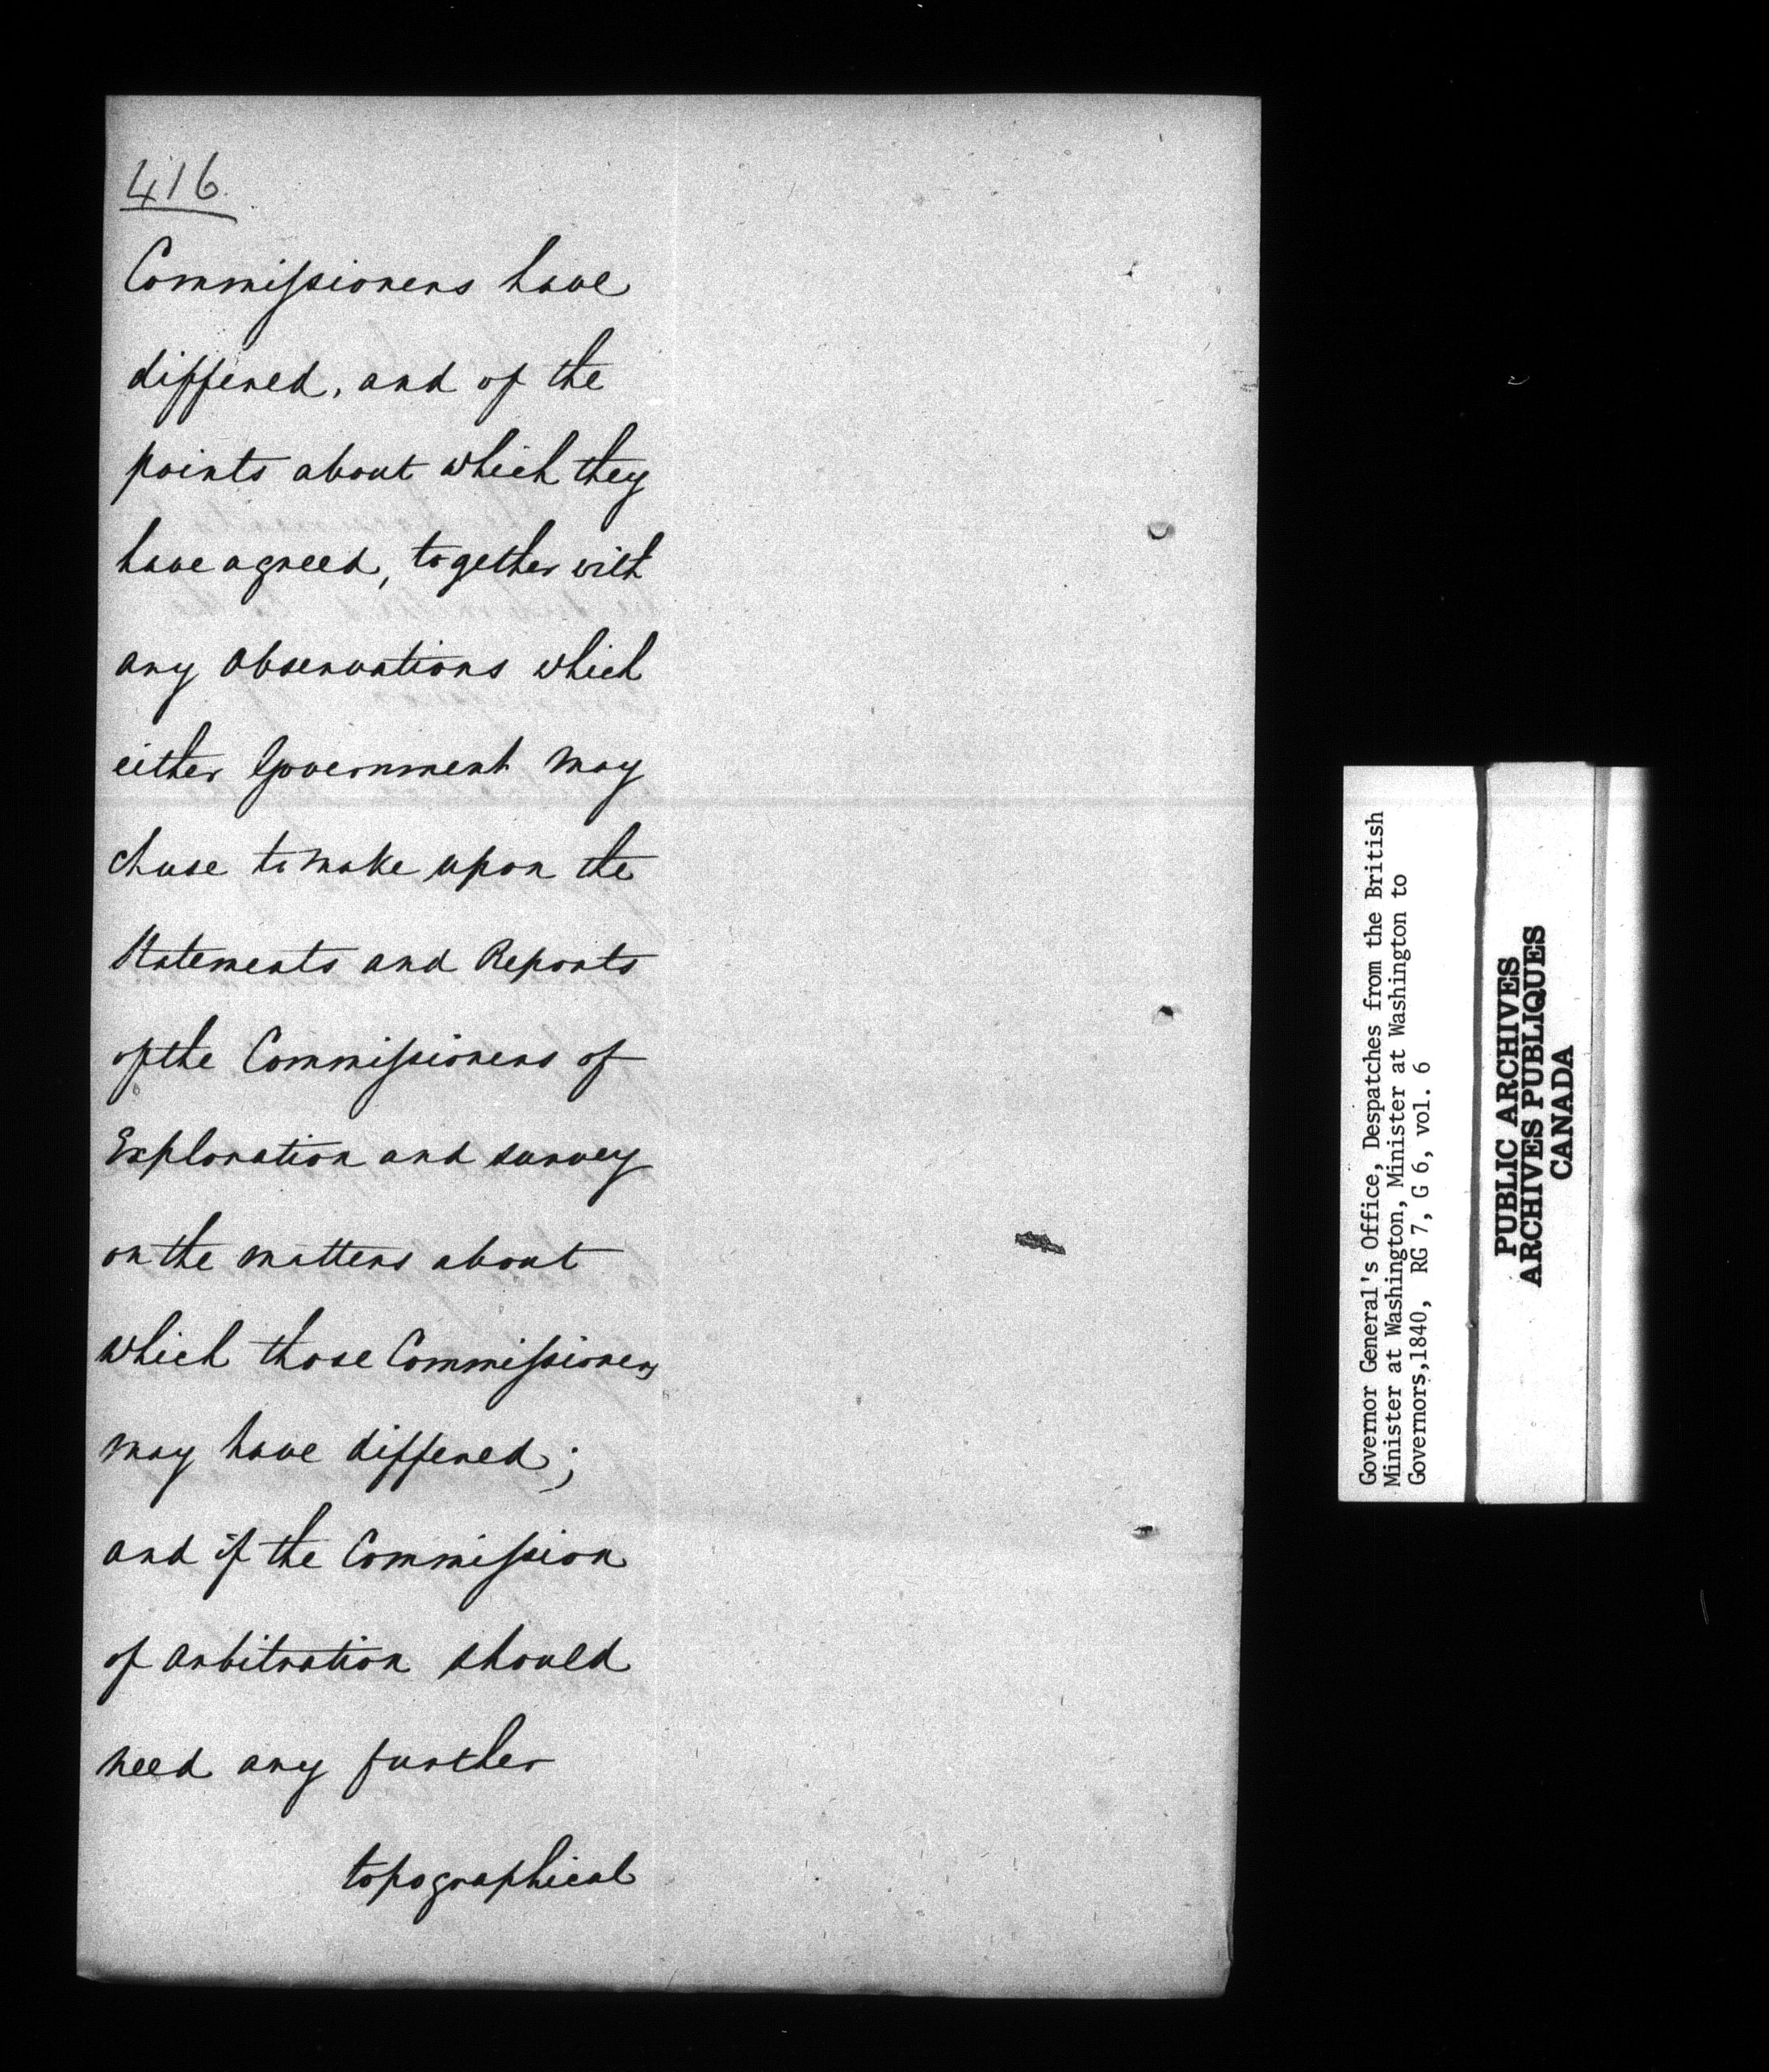 416.
Commissioners have
differed, and of the
points about which they
have agreed, together with
any observations which
either Government may
chuse to make upon the
Statements and Reports
of the Commissioners of
Exploration and survey
on the matters about
which those Commissioners
may have differed;
and if the Commission
of arbitration should
need any further
topographical
Governor General's Office, Despatches from the British
Minister at Washington, Minister at Washington to
Governors,1840, RG 7, G 6, vol. 6
PUBLIC ARCHIVES
ARCHIVES PUBLIQUES
CANADA